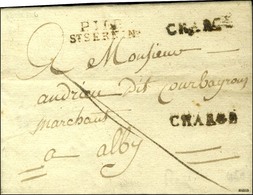 P.11.P.
ST SERNIN
CHARGÉ
A Monsieur
andrieu dit Courbayrous
marchant
CHARGÉ
a alby